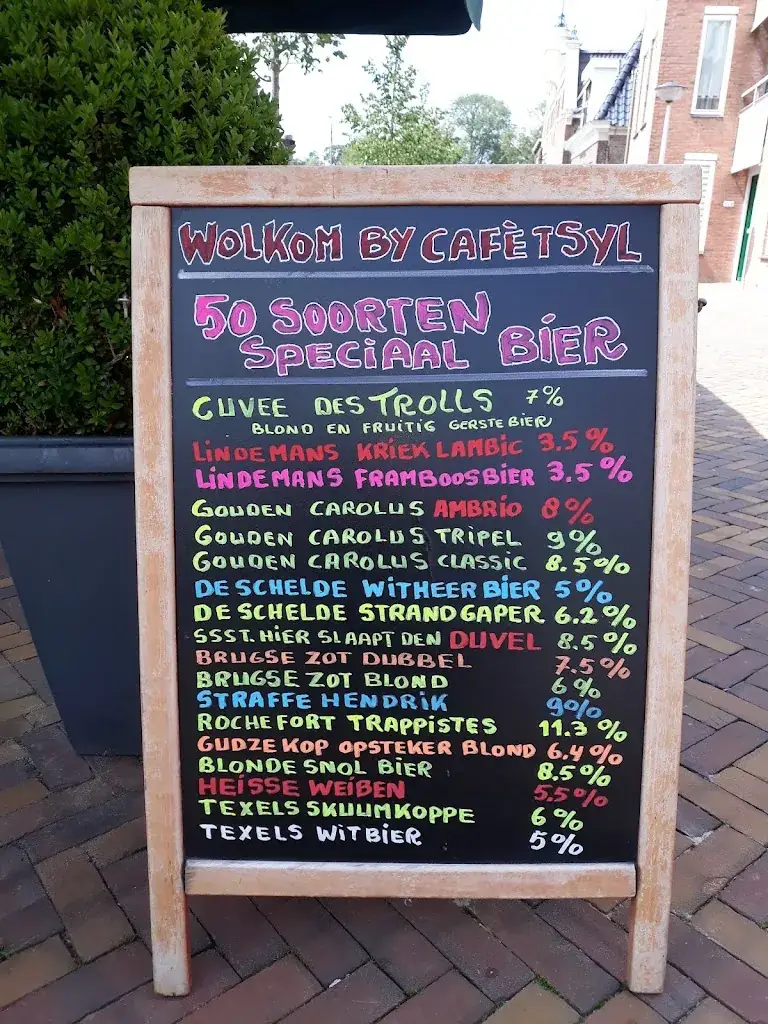 WOLKOM BY CAFÈ TSYL
50 SOORTEN
SPECIAAL BIER
CUVEE DES TROLLS 7%
BLOND EN FRUITIG GERSTEBIER
LINDEMANS KRIEK LAMBIC 3.5%
LINDEMANS FRAMBOOSBIER 3.5%
GOUDEN CAROLUS AMBRIO 8%
GOUDEN CAROLUS TRIPEL 9%
GOUDEN CAROLUS CLASSIC 8.5%
DE SCHELDE WITHEER BIER 5%
DE SCHELDE STRANDGAPER 6.2%
SSST. HIER SLAAPT DEN DUVEL 8.5%
BRUGSE ZOT DUBBEL 7.5%
BRUGSE ZOT BLOND 6%
STRAFFE HENDRIK 9%
ROCHEFORT TRAPPISTES 11.3%
GUDZEKOP OPSTEKER BLOND 6.4%
BLONDE SNOL BIER 8.5%
HEISSE WEIBEN 5.5%
TEXELS SKUUMKOPPE 6%
TEXELS WITBIER 5%